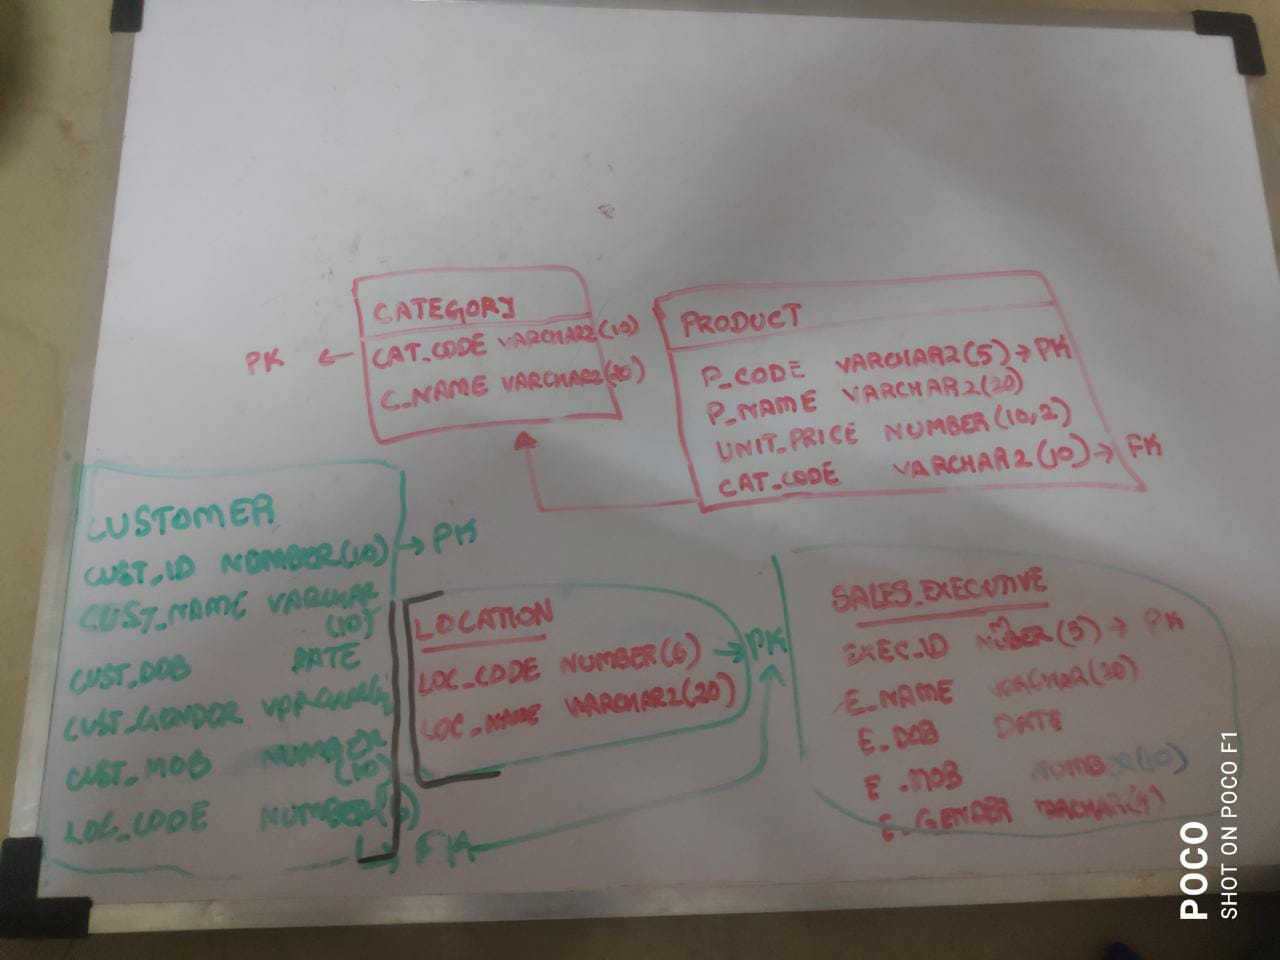 CATEGORY
PK ← CAT_CODE VARCHAR2(10)
C_NAME VARCHAR2(20)
PRODUCT
P_CODE VARCHAR2(5) → PK
P_NAME VARCHAR2(20)
UNIT_PRICE NUMBER(10,2)
CAT_CODE VARCHAR2(10) → FK
CUSTOMER
CUST_ID NUMBER(10) → PK
CUST_NAME VARCHAR
(10)
CUST_DOB DATE
CUST_GENDER
CUST_MOB NUMBER
(10)
LOC_CODE NUMBER
FK
LOCATION
LOC_CODE NUMBER(6) → PK
LOC_NAME VARCHAR2(20)
SALES_EXECUTIVE
EXEC_ID → PK
E_NAME VARCHAR(20)
E_DOB DATE
E_MOB NUMBER(10)
E_GENDER
POCO
SHOT ON POCO F1